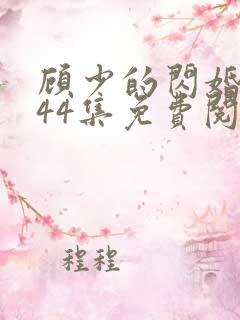 顾少的閃婚
44集免費閱
程程